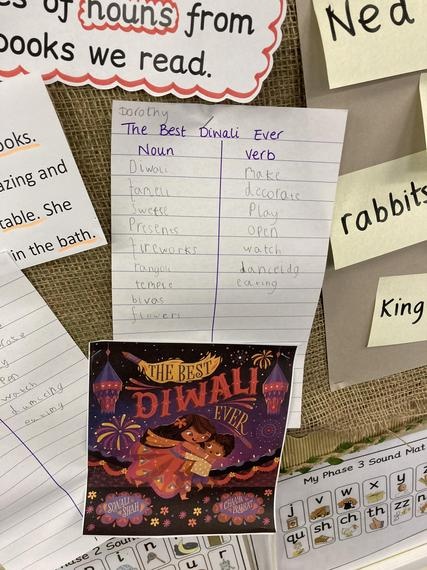 of nouns from
books we read.
Ned
ooks.
azing and
table. She
in the bath.
Dorothy
The Best Diwali Ever
Noun Verb
Diwali make
decorate
Swette Play
Presents open
fireworks watch
rangoli
temple eating
flowers
rabbits
King
THE BEST
DIWALI
EVER
SONALI SHAH
CHAAYA PRABHAT
My Phase 3 Sound Mat
j v w x y z
qu sh ch th zz